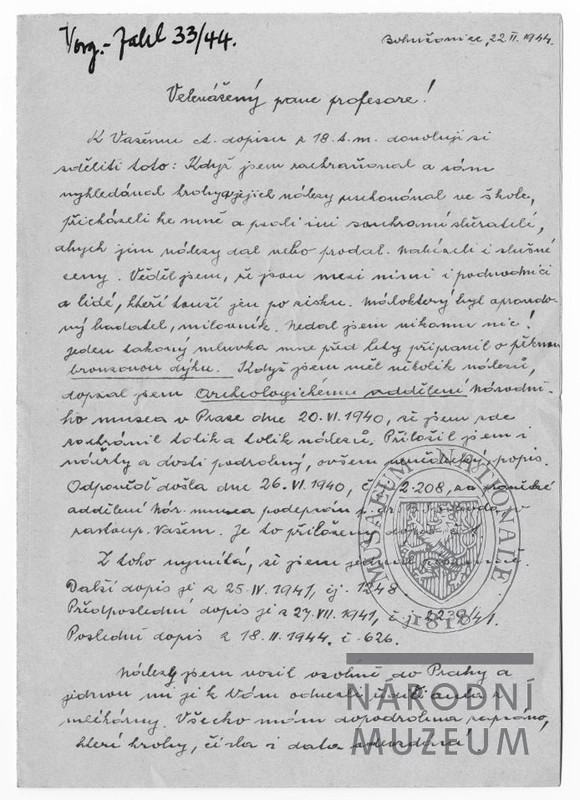 Vorg.-Zahl 33/44.
Bohušovice, 22 II. 1944.
Velevážený pane profesore!
K Vašemu ct. dopisu z 18. t. m. dovoluji si
sděliti toto: Když jsem zachraňoval a sám
vyhledával hroby a jejich nálezy uschovával ve škole,
přicházeli ke mně a psali mi soukromí sběratelé,
abych jim nálezy dal nebo prodal. Nabízeli i slušné
ceny. Věděl jsem, že jsou mezi nimi i podvodníci
a lidé, kteří touží jen po zisku. Málokterý byl opravdo-
vý badatel, milovník. Nedal jsem nikomu nic!
Jeden takový mluvka mne před lety připravil o pěknou
bronzovou dýku. Když jsem měl několik nálezů,
dopsal jsem Archeologickému oddělení Národní-
ho musea v Praze dne 20. VI. 1940, že jsem zde
zachránil tolik a tolik nálezů. Přiložil jsem i
náčrty a dosti podrobný, ovšem popis.
Odpověď došla dne 26. VI. 1940, č. 2-208, za
oddělení Nár. musea podepsán v
zastoup. Vašem. Je to přiložený dopis
Z toho vysvítá, že jsem jednal
Další dopis je z 25. IV. 1941, čj. 1248.
Předposlední dopis je z 27. VII. 1941, č. j. 2238/41.
Poslední dopis z 18. II. 1944. č. 626.
Nálezy jsem vozil osobně do Prahy a
jednou mi je k Vám odvezli auta z
mlékárny. Všecko mám dopodrobna zapsáno,
které hroby, čísla i data
MUSAEUM NATIONALE 1818
NÁRODNÍ
MUZEUM